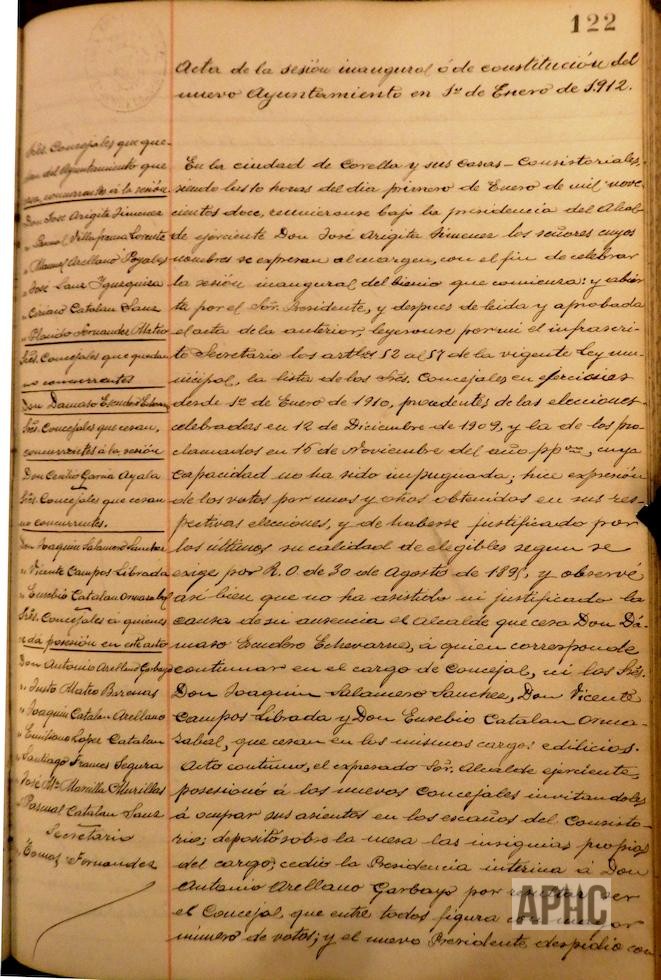 122
Acta de la sesión inaugural ó de constitución del
nuevo Ayuntamiento en 1º de Enero de 1.912.
Sres. Concejales que que-
dan del Ayuntamiento que
concurrentes á la sesión
Don José Arigita Jimenez
" Villafranca Lorente
" Manuel Arellano Poyales
" José Sanz Yzurquiza
" Ciriaco Catalan Sanz
" Placido Fernandez Mateo
Sres. Concejales que quedan
no concurrentes
Don Damaso Escudero
Sres. Concejales que cesan,
concurrentes á la sesión
Don Cecilio Garcia Ayala
Sres. Concejales que cesan
no concurrentes.
Don Joaquin Salamero Sanchez
" Vicente Campos Librada
" Eusebio Catalan Ormazabal
Sres. Concejales á quienes
se da posesión en este acto
Don Antonio Arellano Garbayo
" Justo Mateo
" Joaquin Catalan Arellano
" Emiliano Lopez Catalan
" Santiago Frances Segura
" José Mª Mansilla Murillas
" Pascual Catalan Sanz
Secretario
" Tomas Fernandez
En la ciudad de Corella y sus Casas-Consistoriales,
siendo las 10 horas del dia primero de Enero de mil nove-
cientos doce, reunieronse bajo la presidencia del Alcal-
de ejerciente Don José Arigita Jimenez los señores cuyos
nombres se expresan al margen, con el fin de celebrar
la sesión inaugural del bienio que comienza: y abier-
ta por el Sor. Presidente, y despues de leida y aprobada
el acta de la anterior, leyeronse por mi el infrascri-
to Secretario los artles 52 al 57 de la vigente Ley mu-
nicipal, la lista de los Sres. Concejales en ejercicio
desde 1º de Enero de 1910, procedentes de las elecciones
celebradas en 12 de Diciembre de 1909, y la de los pro-
clamados en 15 de Noviembre del año ppdo, cuya
capacidad no ha sido impugnada; hice expresión
de los votos por unos y otros obtenidos en sus res-
pectivas elecciones, y de haberse justificado por
los últimos su calidad de elegibles segun se
exige por R. O. de 30 de Agosto de y observé
asi bien que no ha asistido ni justificado la
causa de su ausencia el Alcalde que cesa Don Dá-
maso Escudero Echevarria, á quien corresponde
continuar en el cargo de Concejal, ni los Sres.
Don Joaquin Salamero Sanchez, Don Vicente
Campos Librada y Don Eusebio Catalan Orma-
zabal, que cesan en los mismos cargos edilicios.
Acto continuo, el expresado Sor. Alcalde ejerciente,
posesionó á los nuevos Concejales invitandoles
á ocupar sus asientos en los escaños del Consisto-
rio; depositó sobre la mesa las insignias propias
del cargo; cedió la Presidencia interina á Don
Antonio Arellano Garbayo por resultar ser
el Concejal que entre todos figura con mayor
número de votos; y el nuevo Presidente despidió con
APHC